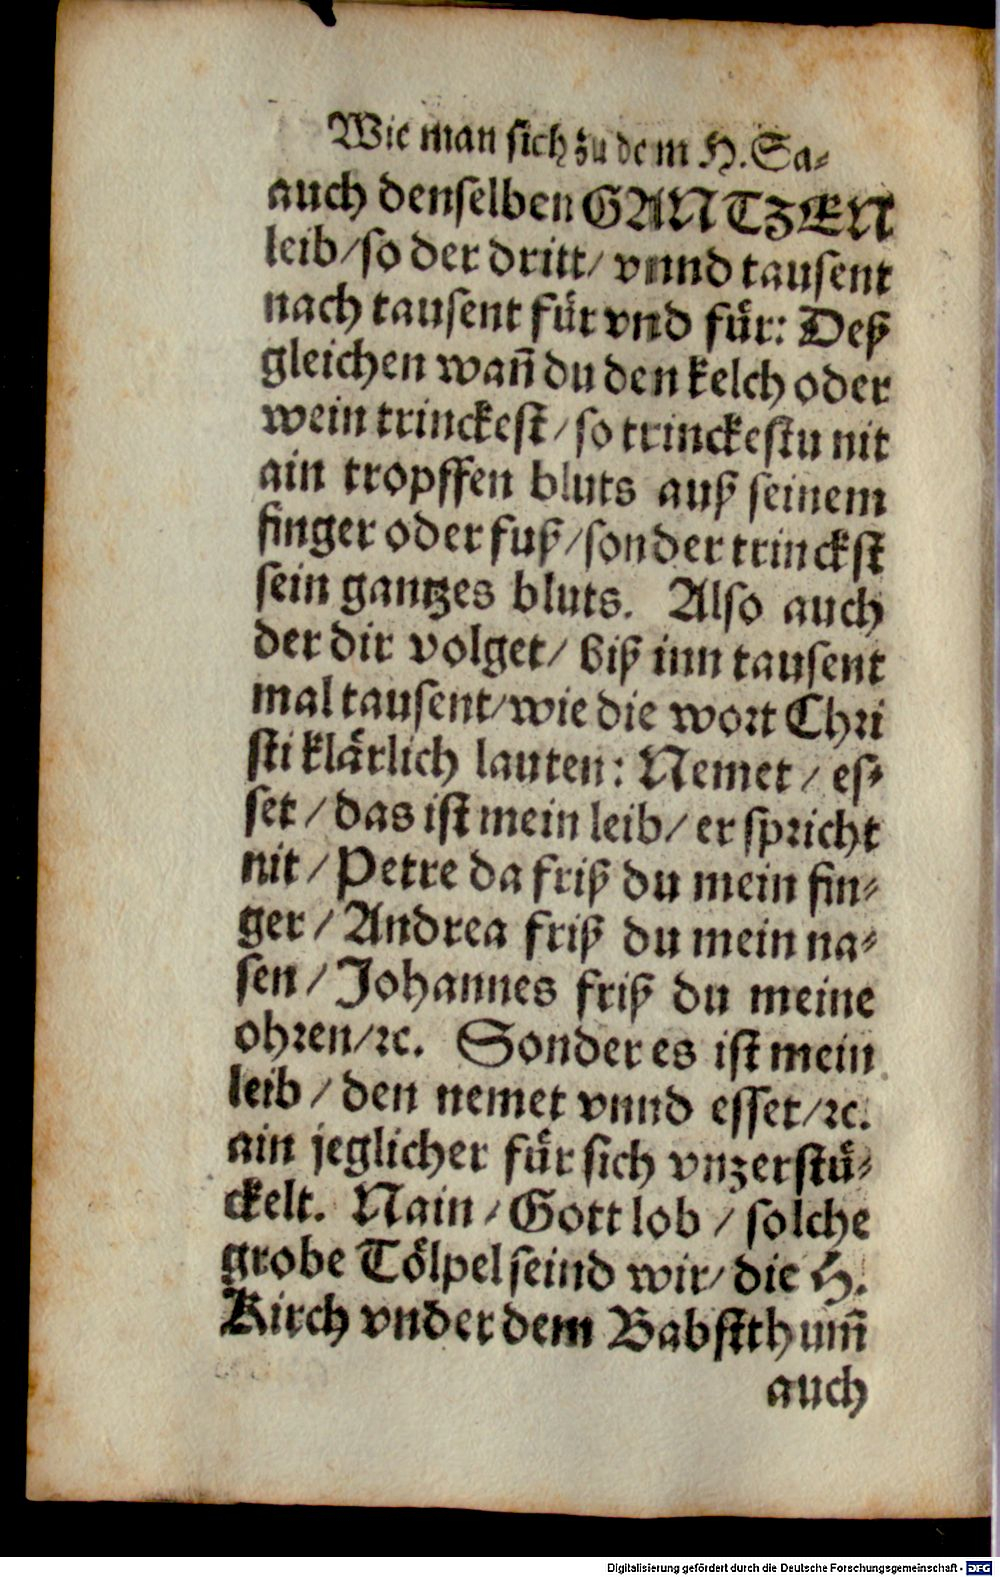 Wie man sich zu dem H. Sa⸗
auch denselben GANTZEN
leib/ so der dritt/ vnnd tausent
nach tausent für vnd für: Deß
gleichen wañ du den kelch oder
wein trinckest/ so trinckestu nit
ain tropffen bluts auß seinem
finger oder fuß/ sonder trinckst
sein gantzes bluts. Also auch
der dir volget/ biß inn tausent
mal tausent/ wie die wort Chri
sti klärlich lauten: Nemet/ es⸗
set/ das ist mein leib/ er spricht
nit/ Petre da friß du mein fin⸗
ger/ Andrea friß du mein na⸗
sen/ Johannes friß du meine
ohren/ ꝛc. Sonder es ist mein
leib/ den nemet vnnd esset/ ꝛc.
ain jeglicher für sich vnzerstü⸗
ckelt. Nain/ Gott lob/ solche
grobe Tölpel seind wir/ die H.
Kirch vnder dem Babstthum̃
auch
Digitalisierung gefördert durch die Deutsche Forschungsgemeinschaft - DFG